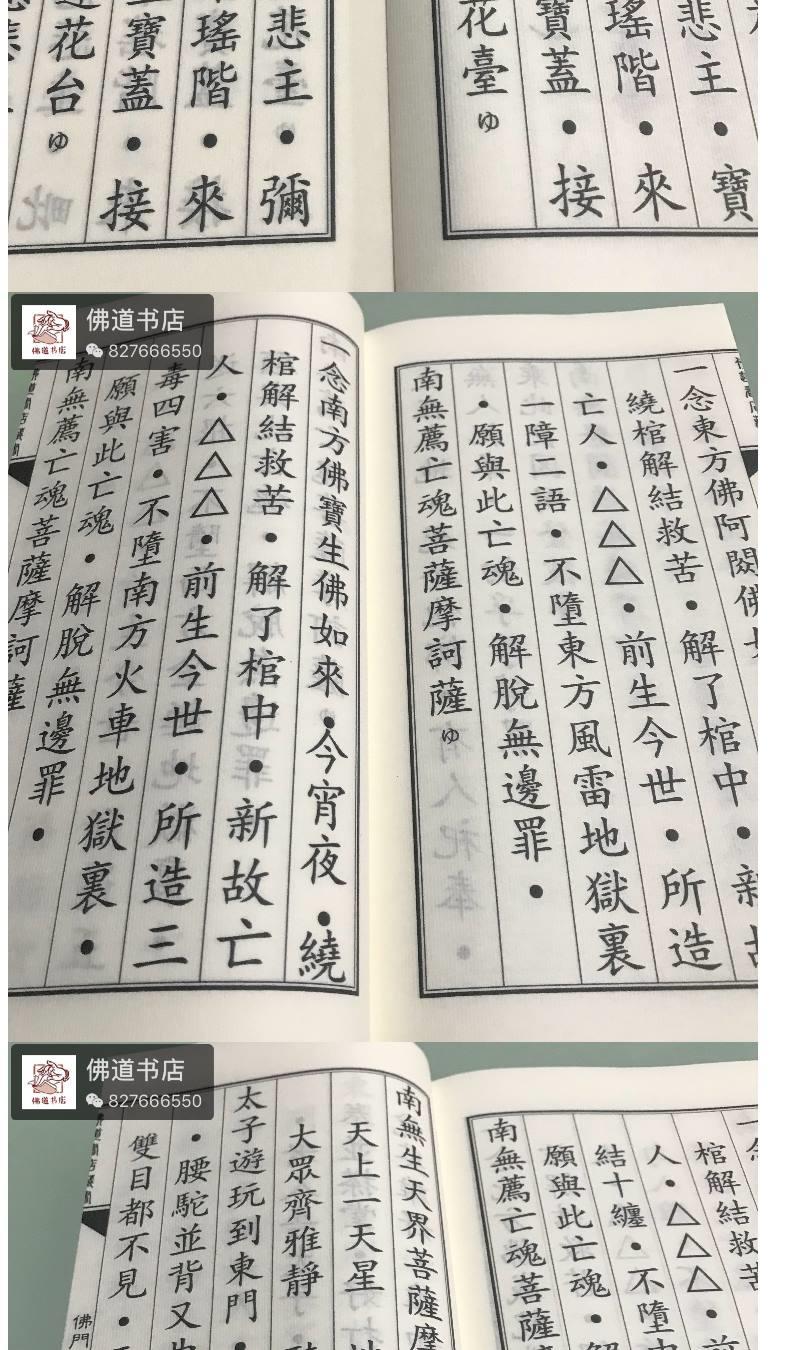 悲主•寶
瑤階•來
寶蓋•接
花臺ゆ
悲主•彌
瑤階•來
寶蓋•接
花台ゆ
佛道书店
827666550
佛道书店
一念東方佛阿閦佛
繞棺解結救苦•解了棺中•新
亡人•△△△•前生今世•所造
一障二語•不墮東方風雷地獄裏
•願與此亡魂•解脫無邊罪•
南無薦亡魂菩薩摩訶薩ゆ
一念南方佛寶生佛如來•今宵夜•繞
棺解結救苦•解了棺中•新故亡
人•△△△•前生今世•所造三
毒四害•不墮南方火車地獄裏•
願與此亡魂•解脫無邊罪•
南無薦亡魂菩薩摩訶薩
佛道书店
827666550
佛道书店
棺解結救苦
人•△△△•前
結十纏•不墮中
願與此亡魂•解
南無薦亡魂菩薩
南無生天界菩薩摩
天上一天星
大眾齊雅靜
太子遊玩到東門•
•腰駝並背又
雙目都不見•
佛門